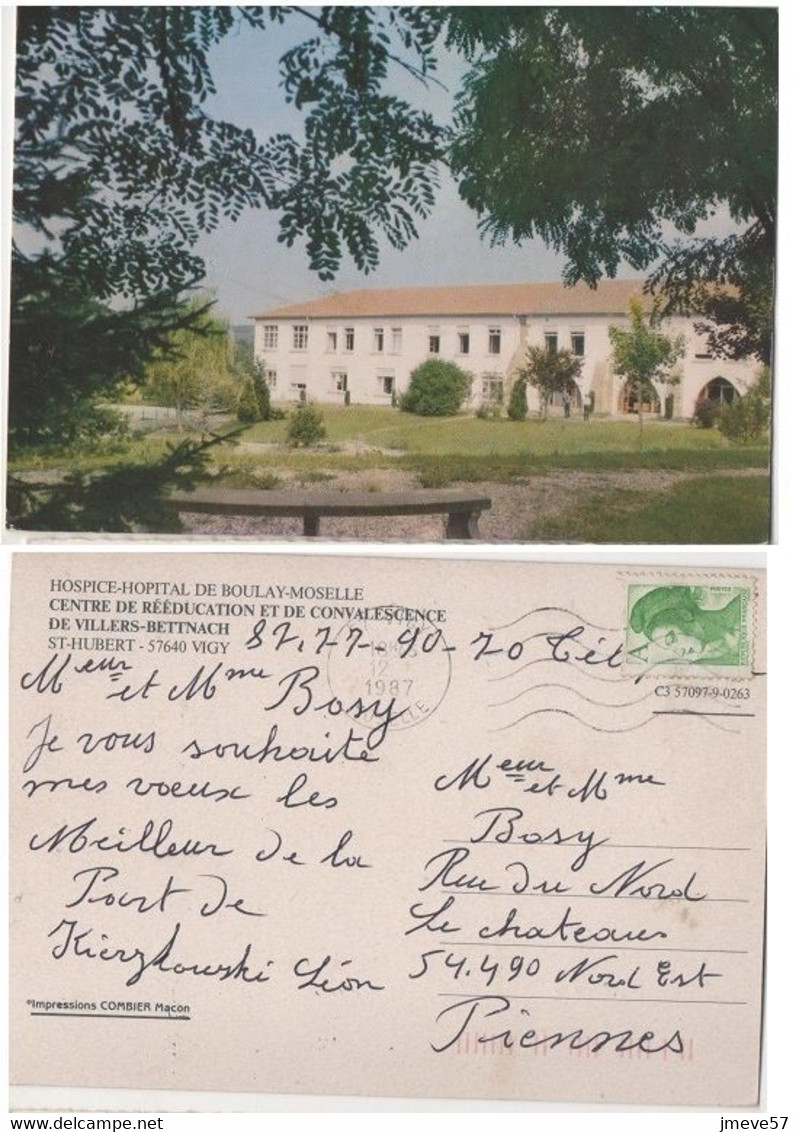 HOSPICE-HOPITAL DE BOULAY-MOSELLE
CENTRE DE RÉÉDUCATION ET DE CONVALESCENCE
DE VILLERS-BETTNACH
ST-HUBERT - 57640 VIGY 87.77-90-70 Tél
12
1987
MOSELLE
POSTES
REPUBLIQUE FRANÇAISE
A
C3 57097-9-0263
Meur et Mme Bosy
Je vous souhaite
mes vœux les
Meilleur de la
Part de
Kierzkowski Léon
°Impressions COMBIER Macon
Meur et Mme
Bosy
Rue du Nord
Le chateaus
54.490 Nord Est
Piennes
jmeve57